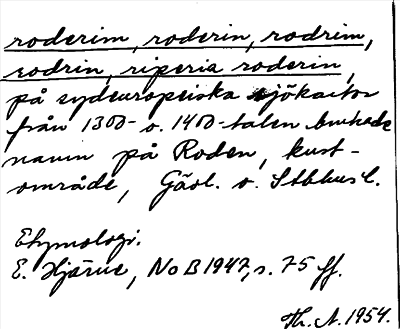 roderim, roderin, rodrim,
rodrin, riperia roderin,
på sydeuropeiska sjökartor
från 1300- o. 1400-talen brukade
namn på Roden, kust-
område, Gävl. o. Sthlms l.
Etymologi.
E. Hjärne, NoB 1947, s. 75 ff.
Th. A. 1954.